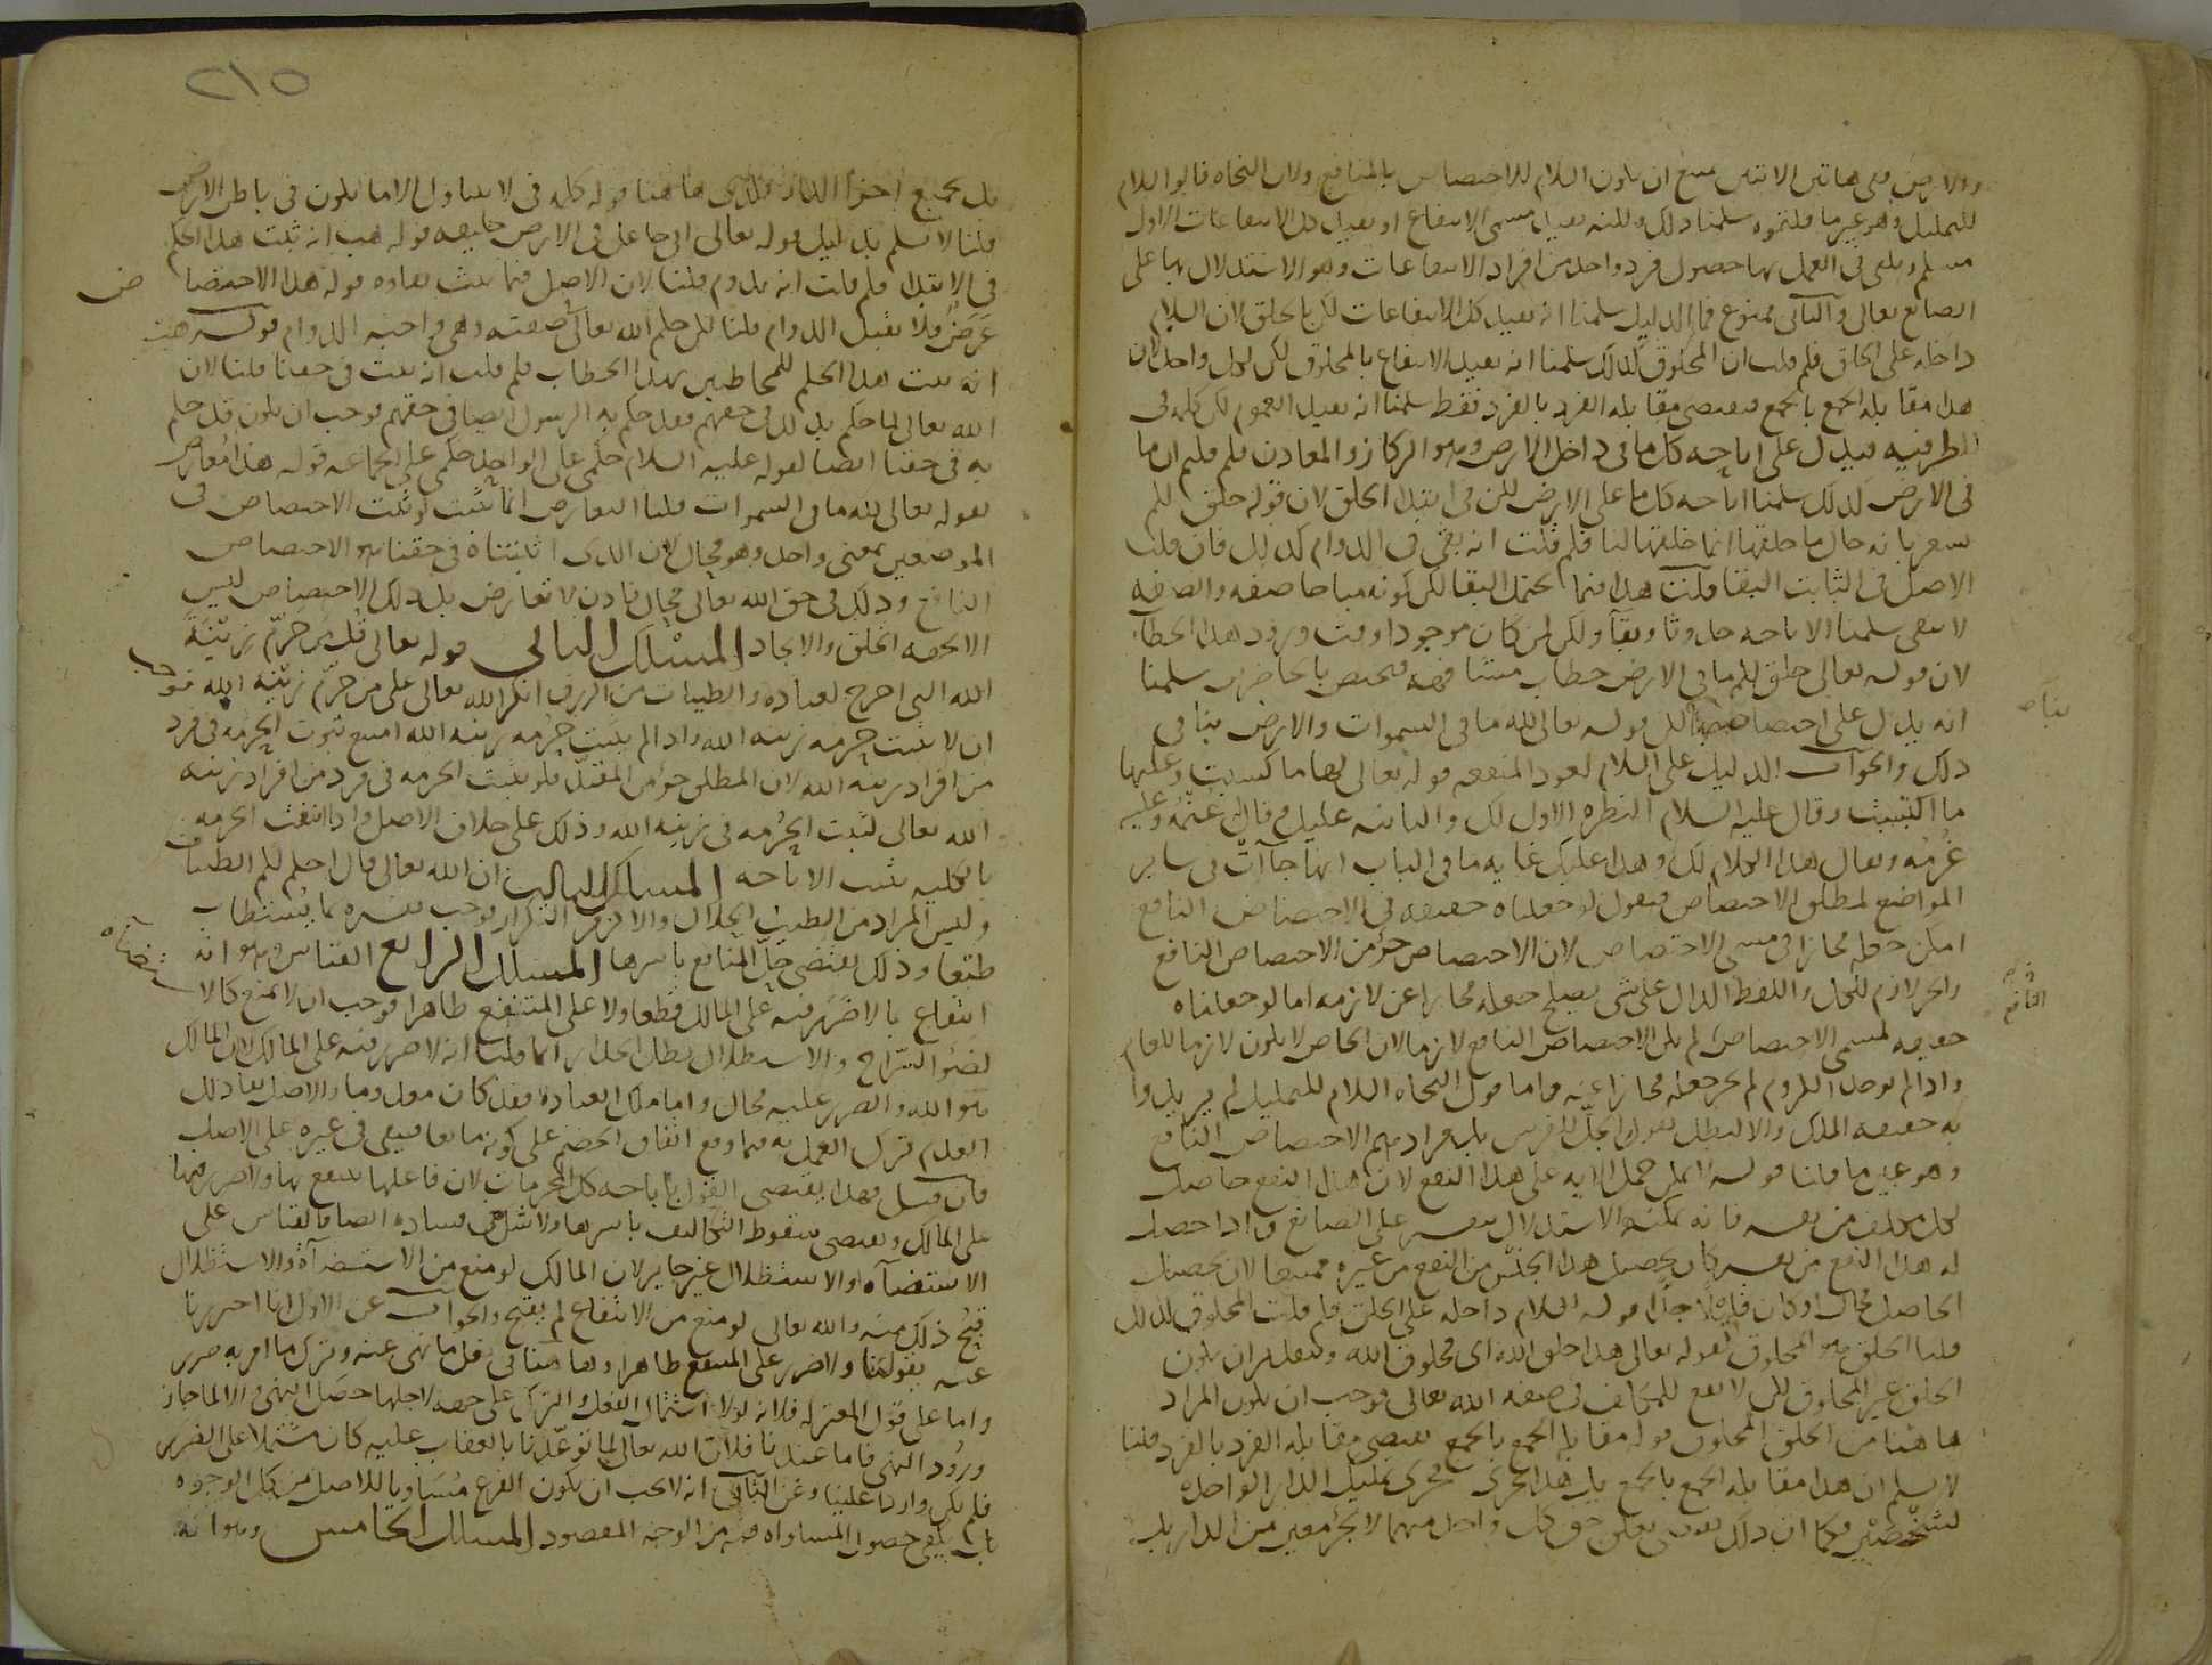 والارض ففي هاتين الايتين يمتنع ان يكون اللام للاختصاص بالمنافع ولان النحاه قالوا اللام
للتمليك وهو غير ما قلتموه سلمنا ذلك ولكنه يفيد مسمى الانتفاع او يفيد كل الانتفاعات الاول
مسلم ويكفي في العمل بها حصول فرد واحد من افراد الانتفاعات وهو الاستدلال بها على
الصانع تعالى والثاني ممنوع فما الدليل سلمنا انه يفيد كل الانتفاعات لكن بالخلق لان اللام
داخله على الخلق فلم قلت ان المخلوق كذلك سلمنا انه يفيد الانتفاع بالمخلوق لكن لكل واحد لان
هذا مقابله الجمع بالجمع فيقتضي مقابله الفرد بالفرد فقط سلمنا انه يفيد العموم لكن كلمه في
للظرفيه فيدل على اباحه كل ما في داخل الارض وهو الركاز والمعادن فلم قلتم ان ما
في الارض كذلك سلمنا اباحه كل ما على الارض لكن في ابتدا الخلق لان قوله خلق لكم
يشعر بانه حال ما خلقها انما خلقها لنا فلم قلت انه بقي في الدوام كذلك فان قلت
الاصل في الثابت البقا قلت هذا فيما يحتمل البقا لكن كونه مباحا صفه والصفه
لا تبقى سلمنا الاباحه حدوثا وبقآ ولكن لمن كان موجودا وقت ورود هذا الخطاب
لان قوله تعالى خلق لكم ما في الارض خطاب مشافهه فيختص بالحاضرين سلمنا
انه يدل على اختصاصها بنا لكن قوله تعالى لله ما في السموات والارض ينافي
ذلك والجواب الدليل على اللام لعود المنفعه قوله تعالى لها ما كسبت وعليها
ما اكتسبت وقال عليه السلام النظره الاولى لك والثانيه عليك وقال له غنمه وعليه
غرمه ويقال هذا الكلام لك وهذا عليك غايه ما في الباب انها جآت في ساير
المواضع لمطلق الاختصاص فنقول لو جعلناه حقيقه في الاختصاص النافع
امكن جعله مجازا في مسمى الاختصاص لان الاختصاص جزؤ من الاختصاص النافع
والجز لازم للكل واللفظ الدال على شي يصلح جعله مجازا عن لازمه اما لو جعلناه
حقيقه لمسمى الاختصاص لم يكن الاختصاص النافع لازما لان الخاص لا يكون لازما للعام
واذا لم يوجد اللزوم لم يجز جعله مجازا عنه واما قول النحاه اللام للتمليك لم يريدوا
به حقيقه الملك والا لبطل بقولنا الجل للفرس بل مرادهم الاختصاص النافع
وهو عين ما قلنا قوله المكن حمل الايه على هذا النفع لان هذا النفع حاصل
لكل مكلف من نفسه فانه يمكنه الاستدلال بنفسه على الصانع واذا حصل
له هذا النفع من نفسه كان تحصيل هذا الجنس من النفع من غيره ممتنعا لان تحصيل
الحاصل محال قوله اللام داخله على الخلق فلم قلت المخلوق كذلك
قلنا الخلق هو المخلوق لقوله تعالى هذا خلق الله اي مخلوق الله وبتقدير ان يكون
الخلق غير المخلوق لكن لا نفع للمكلف في صفه الله تعالى فوجب ان يكون المراد
هاهنا من الخلق المخلوق قوله مقابله الجمع بالجمع يقتضي مقابله الفرد بالفرد قلنا
لا نسلم ان هذا مقابله الجمع بالجمع بل هذا يجري مجرى تمليك الدار الواحده
لشخصين فكما ان ذلك يقتضي تعلق حق كل واحد منهما لا بجزؤ معين من الدار بل
النافع
٢١٥
بل بجميع اجزا الدار فكذى هاهنا قوله كلمه في لا يتناول الا ما يكون في باطن الارض
قلنا لا نسلم بدليل قوله تعالى اني جاعل في الارض خليفه قوله هب انه ثبت هذا الحكم
في الابتدا فلم قلت انه يدوم قلنا لان الاصل فيما ثبت بقاوه قوله هذا الاختصا
ص
عرض فلا يقبل الدوام قلنا لكن حكم الله تعالى صفته وهي واجبه الدوام قوله هب
انه ثبت هذا الحكم للمخاطبين بهذا الخطاب فلم قلت انه ثبت في حقنا قلنا لان
الله تعالى لما حكم بذلك في حقهم فقد حكم به الرسول ايضا في حقهم فوجب ان يكون قد حكم
به في حقنا ايضا لقوله عليه السلام حكمي على الواحد حكمي على الجماعه قوله هذا معارض
بقوله تعالى لله ما في السموات قلنا التعارض انما يثبت لو ثبت الاختصاص في
الموضعين بمعنى واحد وهو محال لان الذي اثبتناه في حقنا هو الاختصاص
النافع وذلك في حق الله تعالى محال فاذن لا تعارض بل ذلك الاختصاص ليس
الا بجهه الخلق والايجاد المسلك الثاني قوله تعالى قل من حرم زينة
الله التي اخرج لعباده والطيبات من الرزق انكر الله تعالى على من حرم زينه الله فوجب
ان لا تثبت حرمه زينه الله واذا لم تثبت حرمه زينه الله امتنع ثبوت الحرمه في فرد
من افراد زينه الله لان المطلق جزؤ من المقيد فلو ثبتت الحرمه في فرد من افراد زينه
الله تعالى لثبتت الحرمه في زينه الله وذلك على خلاف الاصل واذا انتفت الحرمه
بالكليه ثبتت الاباحه المسلك الثالث ان الله تعالى قال احل لكم الطيبات
وليس المراد من الطيب الحلال والا لزم التكرار فوجب تفسيره بما يستطاب
طبعا وذلك يقتضي حل المنافع باسرها المسلك الرابع القياس وهو انه
انتفاع بما لا ضرر فيه على المالك قطعا ولا على المنتفع ظاهرا فوجب ان لا يمنع كالا
ستضاه
بضوء السراج والاستظلال بظل الجدار انما قلنا انه لا ضرر فيه على المالك لان المالك
هو الله والضرر عليه محال واما ملك العباد فقد كان معدوما والاصل بقا ذلك
العدم ترك العمل به فيما وقع اتفاق الخصم على كونه مانعا فيبقى في غيره على الاصل
فان قيل فهذا يقتضي القول باباحه كل المحرمات لان فاعلها ينتفع بها ولا ضرر فيها
على المالك ويقتضي سقوط التكاليف باسرها ولا شك في فساده ايضا فالقياس على
الاستضآه والاستظلال غير جايز لان المالك لو منع من الاستضآه والاستظلال
قبح ذلك منه والله تعالى لو منع من الانتفاع لم يقبح والجواب عن الاول انا احترزنا
عنه بقولنا ولا ضرر على المنتفع ظاهرا وهاهنا في فعل ما نهى عنه وترك ما امر به ضرر
واما على قول المعتزله فلانه لولا اشتمال الفعل والترك على جهه لاجلها حصل النهي والا لما جاز
ورود النهي فاما عندنا فلان الله تعالى لما توعدنا بالعقاب عليه كان مشتملا على الضرر
فلم يكن واردا علينا وعن الثاني انه لا يجب ان يكون الفرع مساويا للاصل من كل الوجوه
بل يكفي حصول المساواه فيه من الوجه المقصود المسلك الخامس وهو انه